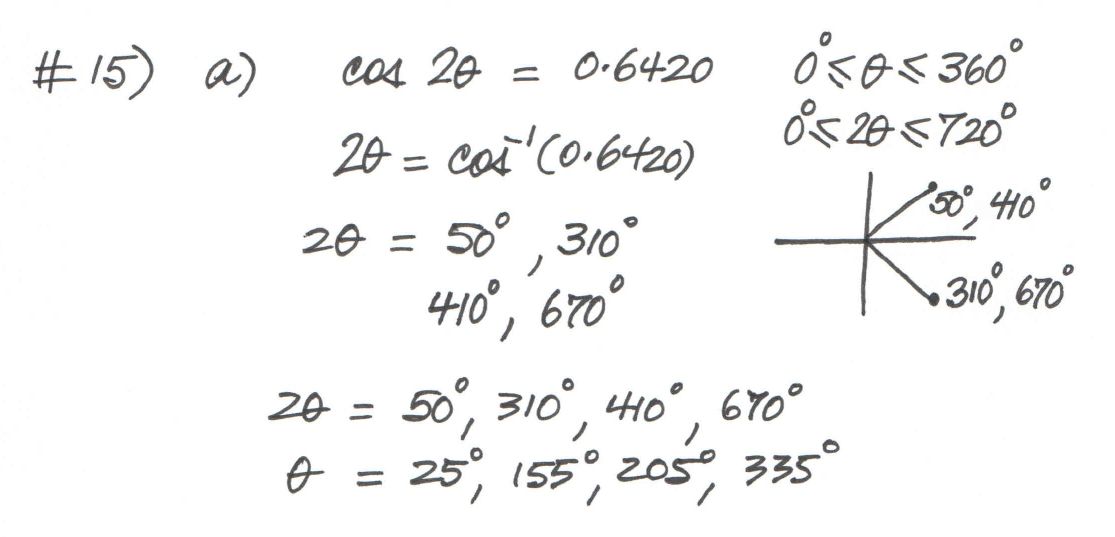 #15) a) cos 2θ = 0.6420 0° ≤ θ ≤ 360°
0° ≤ 2θ ≤ 720°
2θ = cos⁻¹(0.6420)
50°, 410°
2θ = 50°, 310°
410°, 670°
310°, 670°
2θ = 50°, 310°, 410°, 670°
θ = 25°, 155°, 205°, 335°